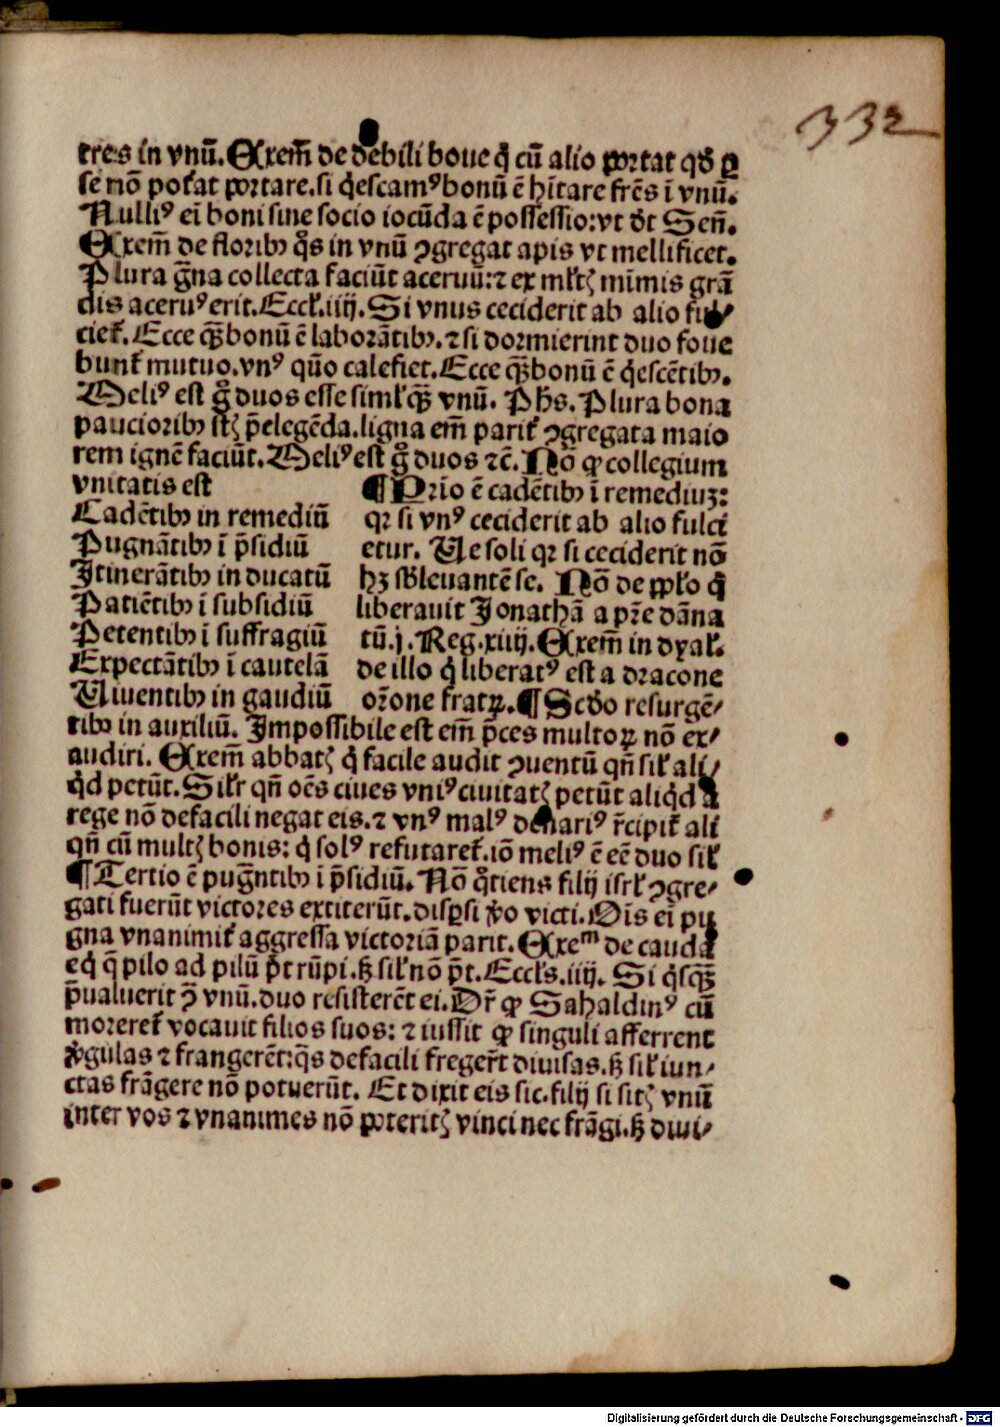 332
tres in vnū. Exem̄ de debili boue q̇ cū alio portat qd̄ ꝑ
se nō pot̄at portare. si q̇escamꝰ bonū ē hītare frēs ī vnū.
Nulliꝰ ei̅ boni sine socio iocūda ē possessio: vt dt̄ Señ.
Exem̄ de floribꝰ q̊s in vnū ꝯgregat apis vt mellificet.
Plura g̅na collecta faciūt aceruū: ⁊ ex ml̄tꝭ mīmis grā
dis aceruꝰ erit. Eccl̄. iiij. Si vnus ceciderit ab alio ful⸗
ciet̄. Ecce qꝫ̄ bonū ē laborātibꝰ. ⁊ si dormierint duo foue
bunt̄ mutuo. vnꝰ quō calefiet. Ecce qꝫ̄ bonū ē q̇escētibꝰ.
Meliꝰ est g̊ duos esse siml̄ qꝫ̄ vnū. Ph̄s. Plura bona
paucioribꝰ st̄ꝭ p̄elegēda. ligna em̄ parit̄ ꝯgregata maio
rem ignē faciūt. Meliꝰ est g̊ duos ⁊c̄. Nō ꝙ collegium
vnitatis est
Cadētibꝰ in remediū
Pugnātibꝰ ī p̄sidiū
Itinerātibꝰ in ducatū
Patiētibꝰ ī subsidiū
Petentibꝰ ī suffragiū
Expectātibꝰ ī cautelā
Viuentibꝰ in gaudiū
¶ Prīo ē cadētibꝰ ī remediuꝫ:
qꝛ si vnꝰ ceciderit ab alio fulci
etur. Ve soli qꝛ si ceciderit nō
hꝫ sb̄leuantē se. Nō de pp̄lo q̇
liberauit Jonathā a pr̄e dāna
tū. j. Reg. xiiij. Exem̄ in dyal̄.
de illo q̇ liberatꝰ est a dracone
or̄one fratꝝ. ¶ Scd̄o resurgē⸗
tibꝰ in auxiliū. Impossibile est em̄ p̄ces multoꝝ nō ex⸗
audiri. Exem̄ abbatꝭ q̇ facile audit ꝯuentū qn̄ sil̄ ali⸗
q̇d petūt. Sil̄r qn̄ oēs ciues vniꝰ ciuitatꝭ petūt aliq̇d a
rege nō defacili negat eis. ⁊ vnꝰ malꝰ denariꝰ r̄cipit̄ ali
qn̄ cū multꝭ bonis: q̇ solꝰ refutaret̄. iō meliꝰ ē eē duo sil̄
¶ Tertio ē pug̅ntibꝰ ī p̄sidiū. Nō q̊tiens filij isrl̄ ꝯgre⸗
gati fuerūt victores extiterūt. disꝑsi v̊o victi. Oīs ei̅ pu
gna vnanimit̄ aggressa victoriā parit. Exeᵐ de cauda
eq̇ q̄ pilo ad pilū p̄t rūpi. ꝫ̄ sil̄ nō p̄t. Eccl̄s. iiij. Si q̇sqꝫ̄
p̄ualuerit ꝯ̄ vnū. duo resisterēt ei. Dr̄ ꝙ Sahaldinꝰ cū
moreret̄ vocauit filios suos: ⁊ iussit ꝙ singuli afferrent
v̊gulas ⁊ frangerēt: q̊s defacili fregerūt diuisas. ꝫ̄ sil̄ iun⸗
ctas frāgere nō potuerūt. Et dixit eis sic. filij si sitꝭ vnū
inter vos ⁊ vnanimes nō poteritꝭ vinci nec frāgi. ꝫ̄ diui⸗
Digitalisierung gefördert durch die Deutsche Forschungsgemeinschaft - DFG